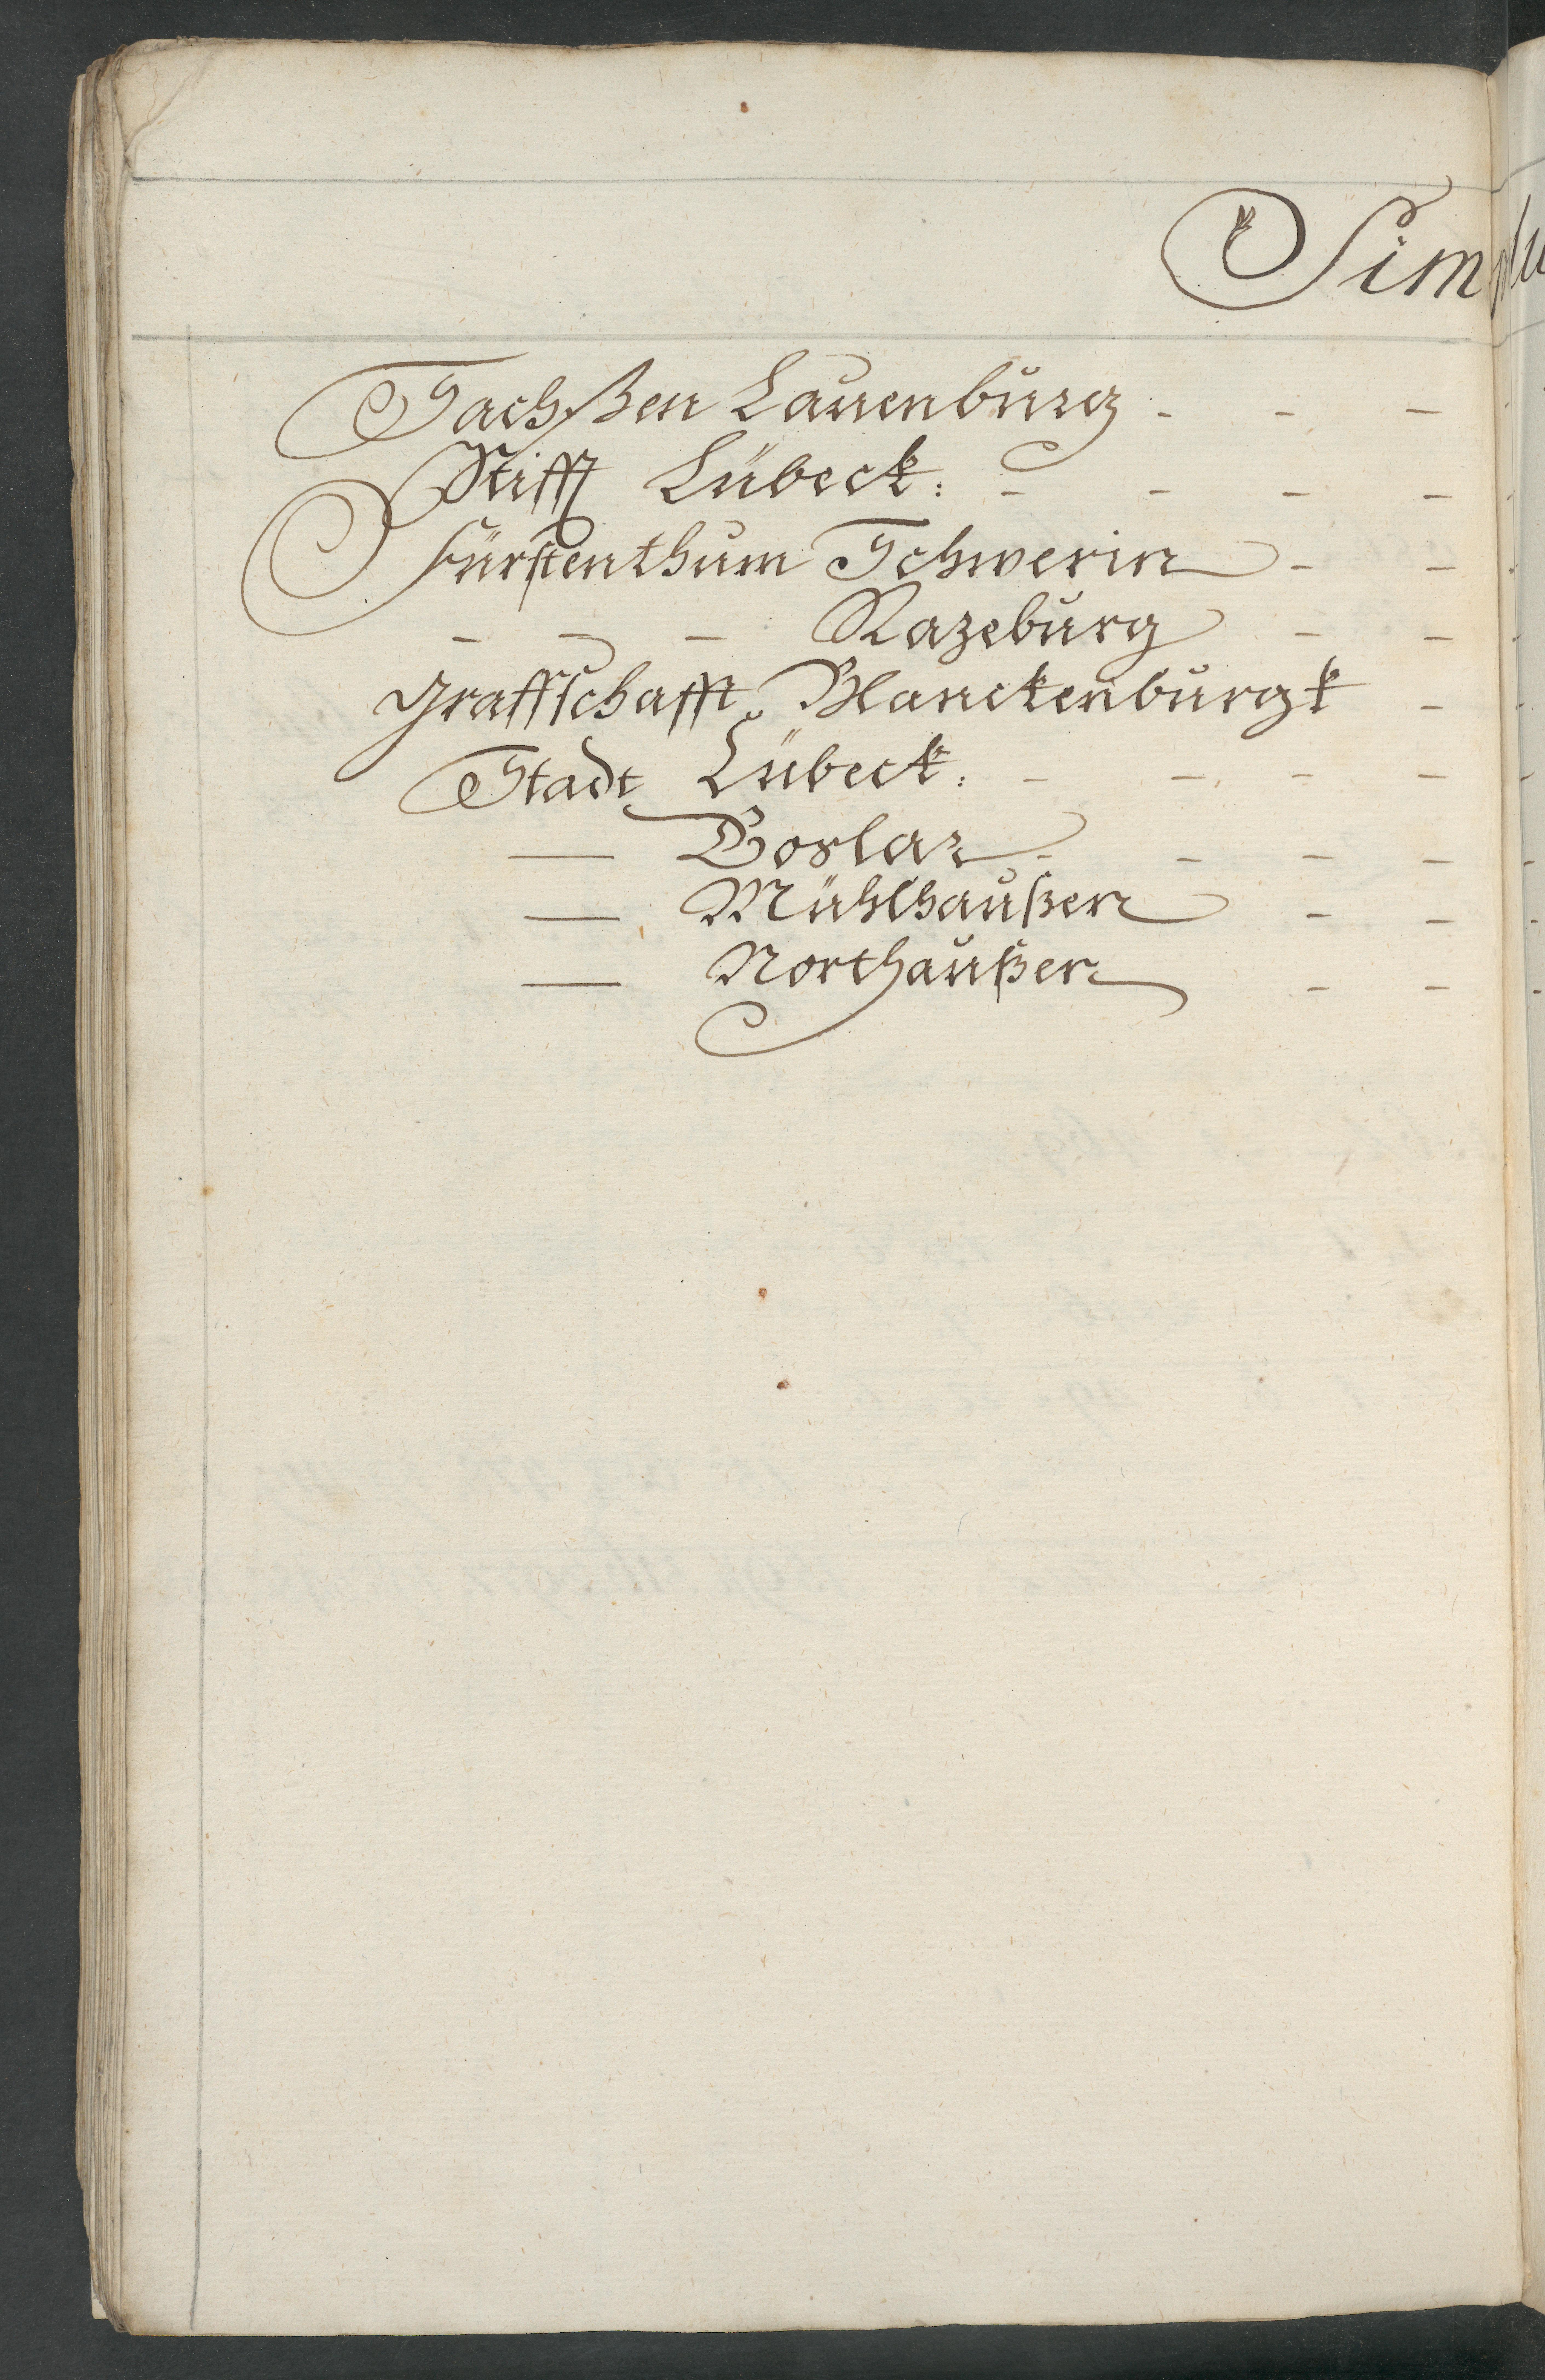 Simplu
Sachßen Lauenburg - - -
Stifft Lübeck: - - - -
Fürstenthum Schwerin - -
- - - Razeburg - -
Graffschafft Blanckenburgk -
Stadt Lübeck. - - - -
— Goslar - - - -
— Mühlhaußen - -
— Northaußen - -